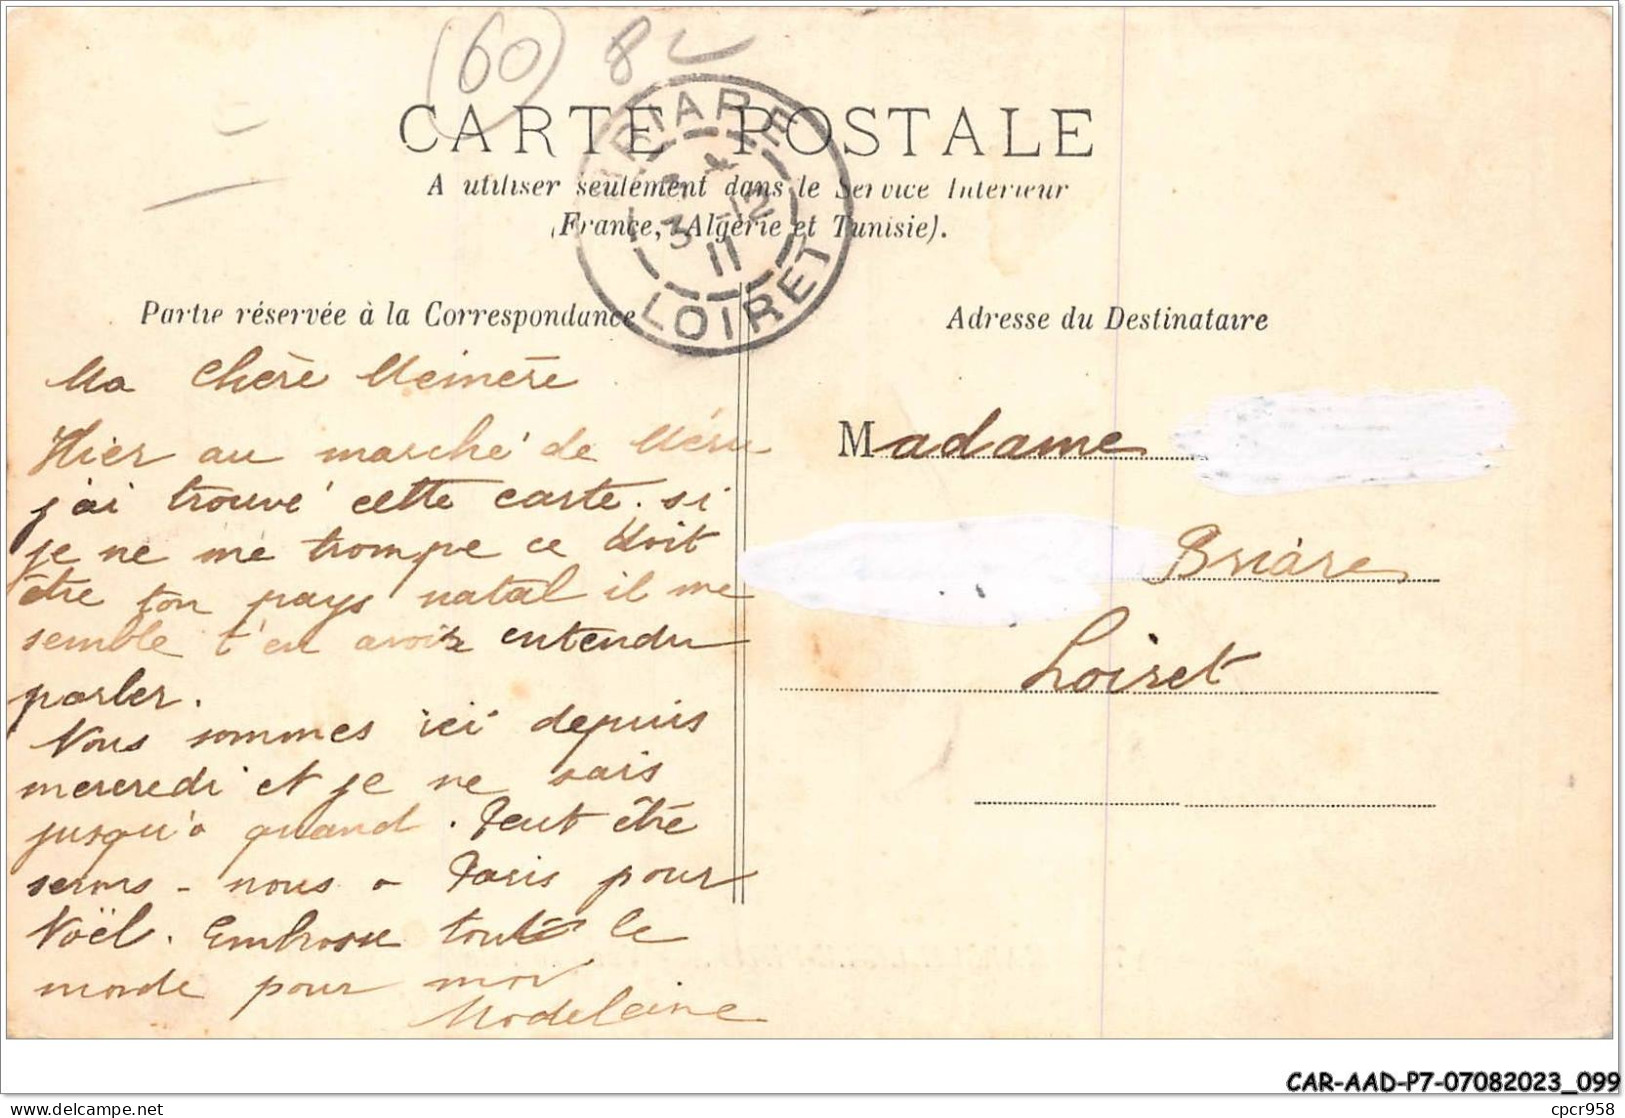 (60) 8
CARTE POSTALE
A utiliser seulement dans le Service Intérieur
(France, Algérie et Tunisie).
BRIARE
3 -12
11
LOIRET
Partie réservée à la Correspondance
Ma Chère Mémère
Hier au marché de Méru
j'ai trouvé cette carte. si
je ne me trompe ce doit
être ton pays natal il me
semble t'en avoir entendu
parler.
Nous sommes ici depuis
mercredi et je ne sais
jusqu'à quand. Peut être
serons-nous a Paris pour
Noël. Embrasse tout le
monde pour moi
Madeleine
Adresse du Destinataire
Madame
Briare
Loiret
CAR-AAD-P7-07082023_099
delcampe.net
cpcr958